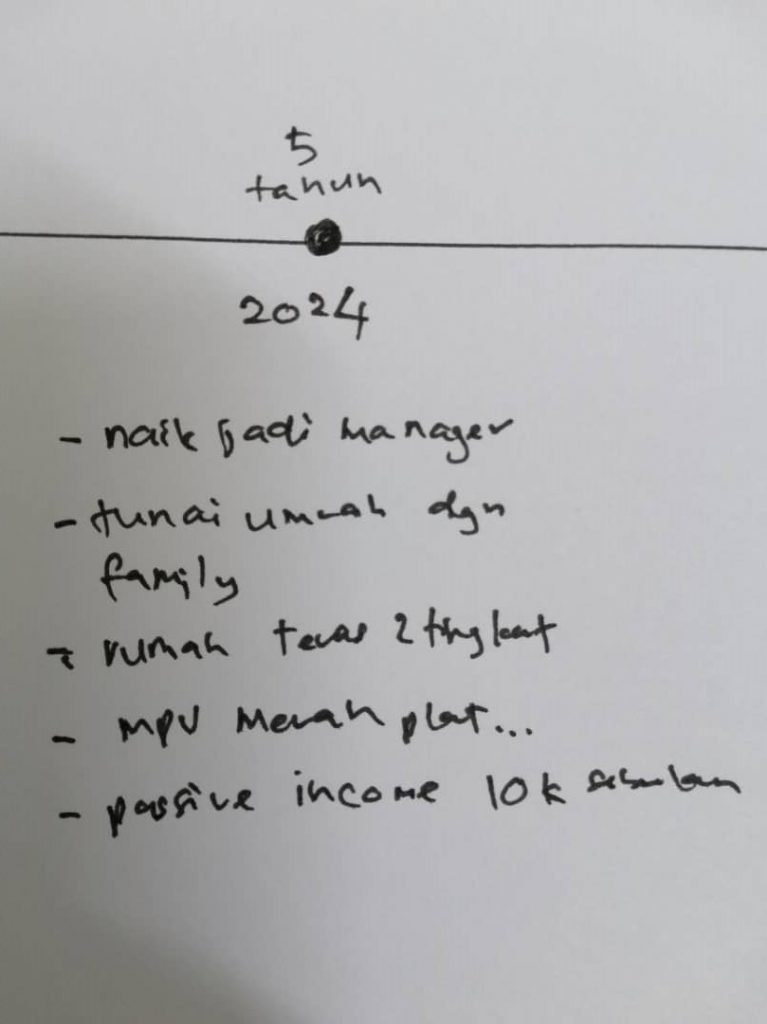 5
tahun
2024
- naik jadi manager
- tunai umrah dgn
family
- rumah teras 2 tingkat
- MPV Merah plat...
- passive income 10k sebulan